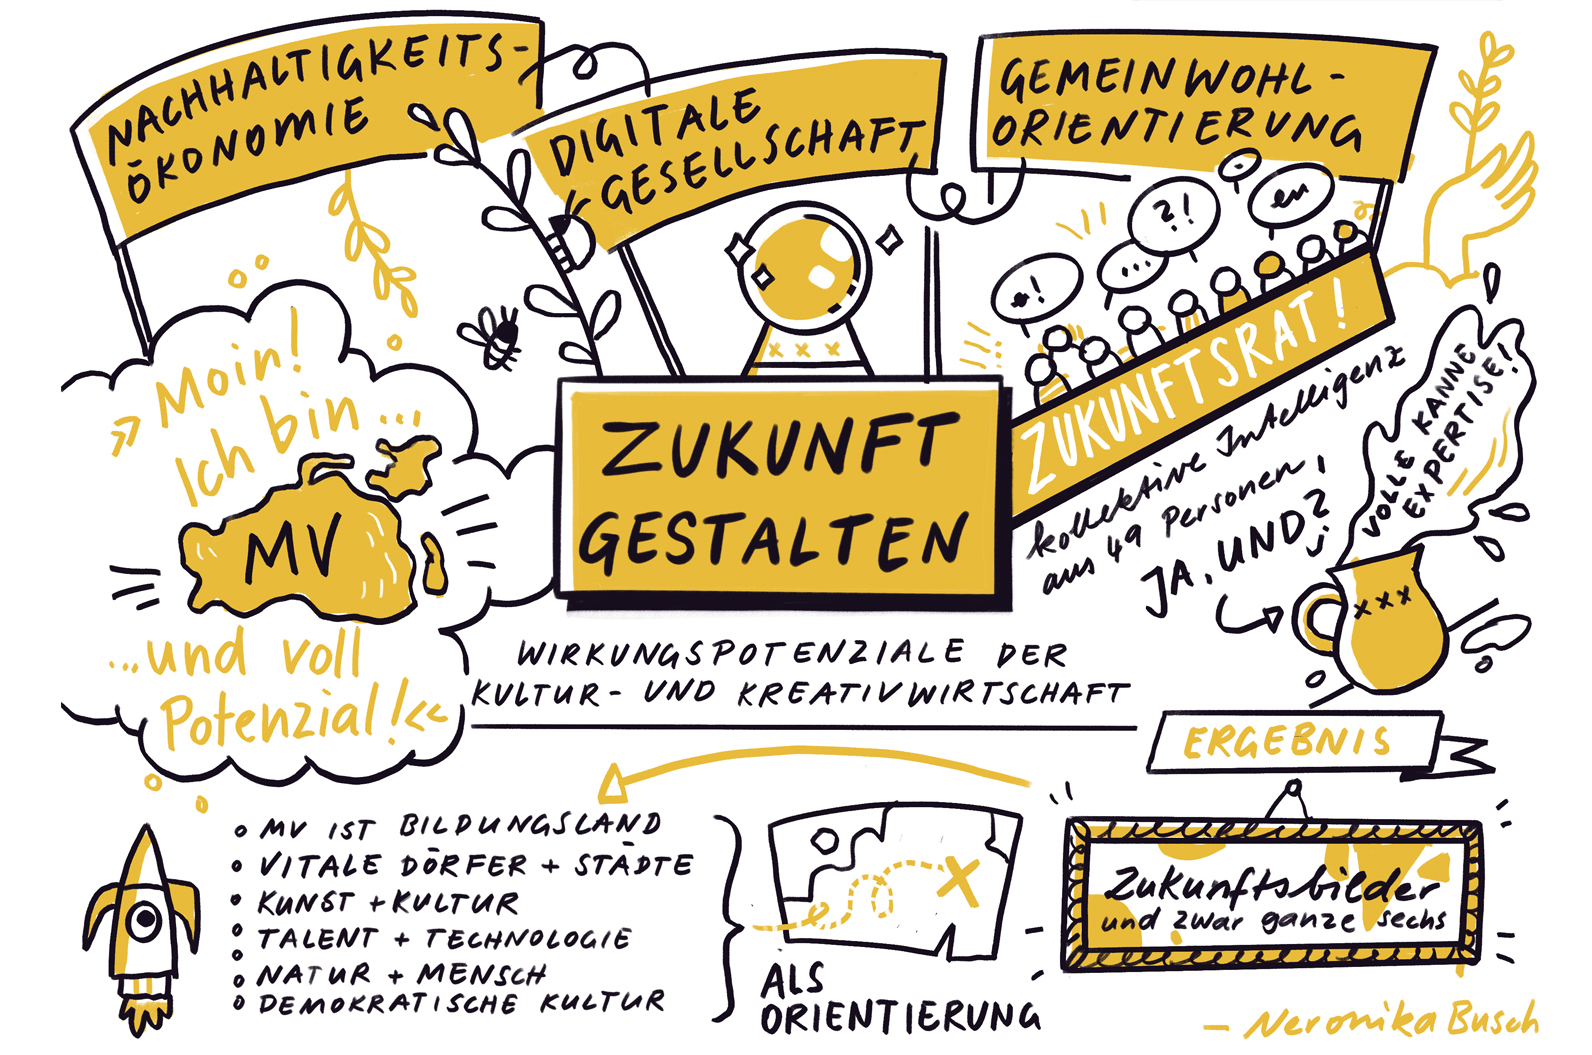 NACHHALTIGKEITS-
ÖKONOMIE
DIGITALE
GESELLSCHAFT
GEMEINWOHL-
ORIENTIERUNG
+!
...
?!
»Moin!
Ich bin...
MV
...und voll
Potenzial!«
ZUKUNFT
GESTALTEN
ZUKUNFTSRAT!
kollektive Intelligenz
aus 49 Personen,
JA, UND?
VOLLE KANNE
EXPERTISE!
WIRKUNGSPOTENZIALE DER
KULTUR- UND KREATIVWIRTSCHAFT
ERGEBNIS
Zukunftsbilder
und zwar ganze sechs
MV IST BILDUNGSLAND
VITALE DÖRFER + STÄDTE
KUNST + KULTUR
TALENT + TECHNOLOGIE
NATUR + MENSCH
DEMOKRATISCHE KULTUR
ALS
ORIENTIERUNG
– Neronika Busch